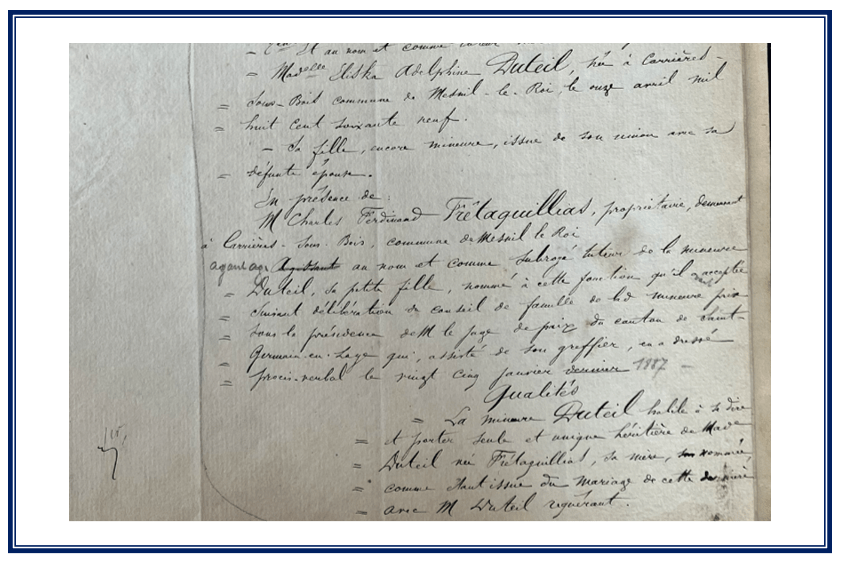 2ent Et au nom et comme tuteur
= Madelle Eliska Adelphine Duteil, née à Carrières-
= Sous-Bois commune de Mesnil-le-Roi, le onze avril mil
= huit cent soixante neuf.
- Sa fille, encore mineure, issue de son union avec sa
= défunte épouse.
En présence de :
M Charles Ferdinand Frétaquillias, propriétaire, demeurant
à Carrières-Sous-Bois, commune du Mesnil le Roi
ayant agi Agissant au nom et comme subrogé tuteur de la mineure
= Duteil, sa petite fille, nommé à cette fonction qu'il a acceptée
= suivant délibération du conseil de famille de lad mineure prise
= sous la présidence de M le juge de paix du canton de Saint-
= Germain-en-Laye qui, assisté de son greffier, en a dressé
= procès-verbal le vingt cinq janvier dernier 1887 -
Qualités
= La mineure Duteil habile à se dire
= et porter seule et unique héritière de Made
= Duteil née Frétaquillias, sa mère, sus nommée,
= comme étant issue du mariage de cette dernière
= avec M Duteil requérant.